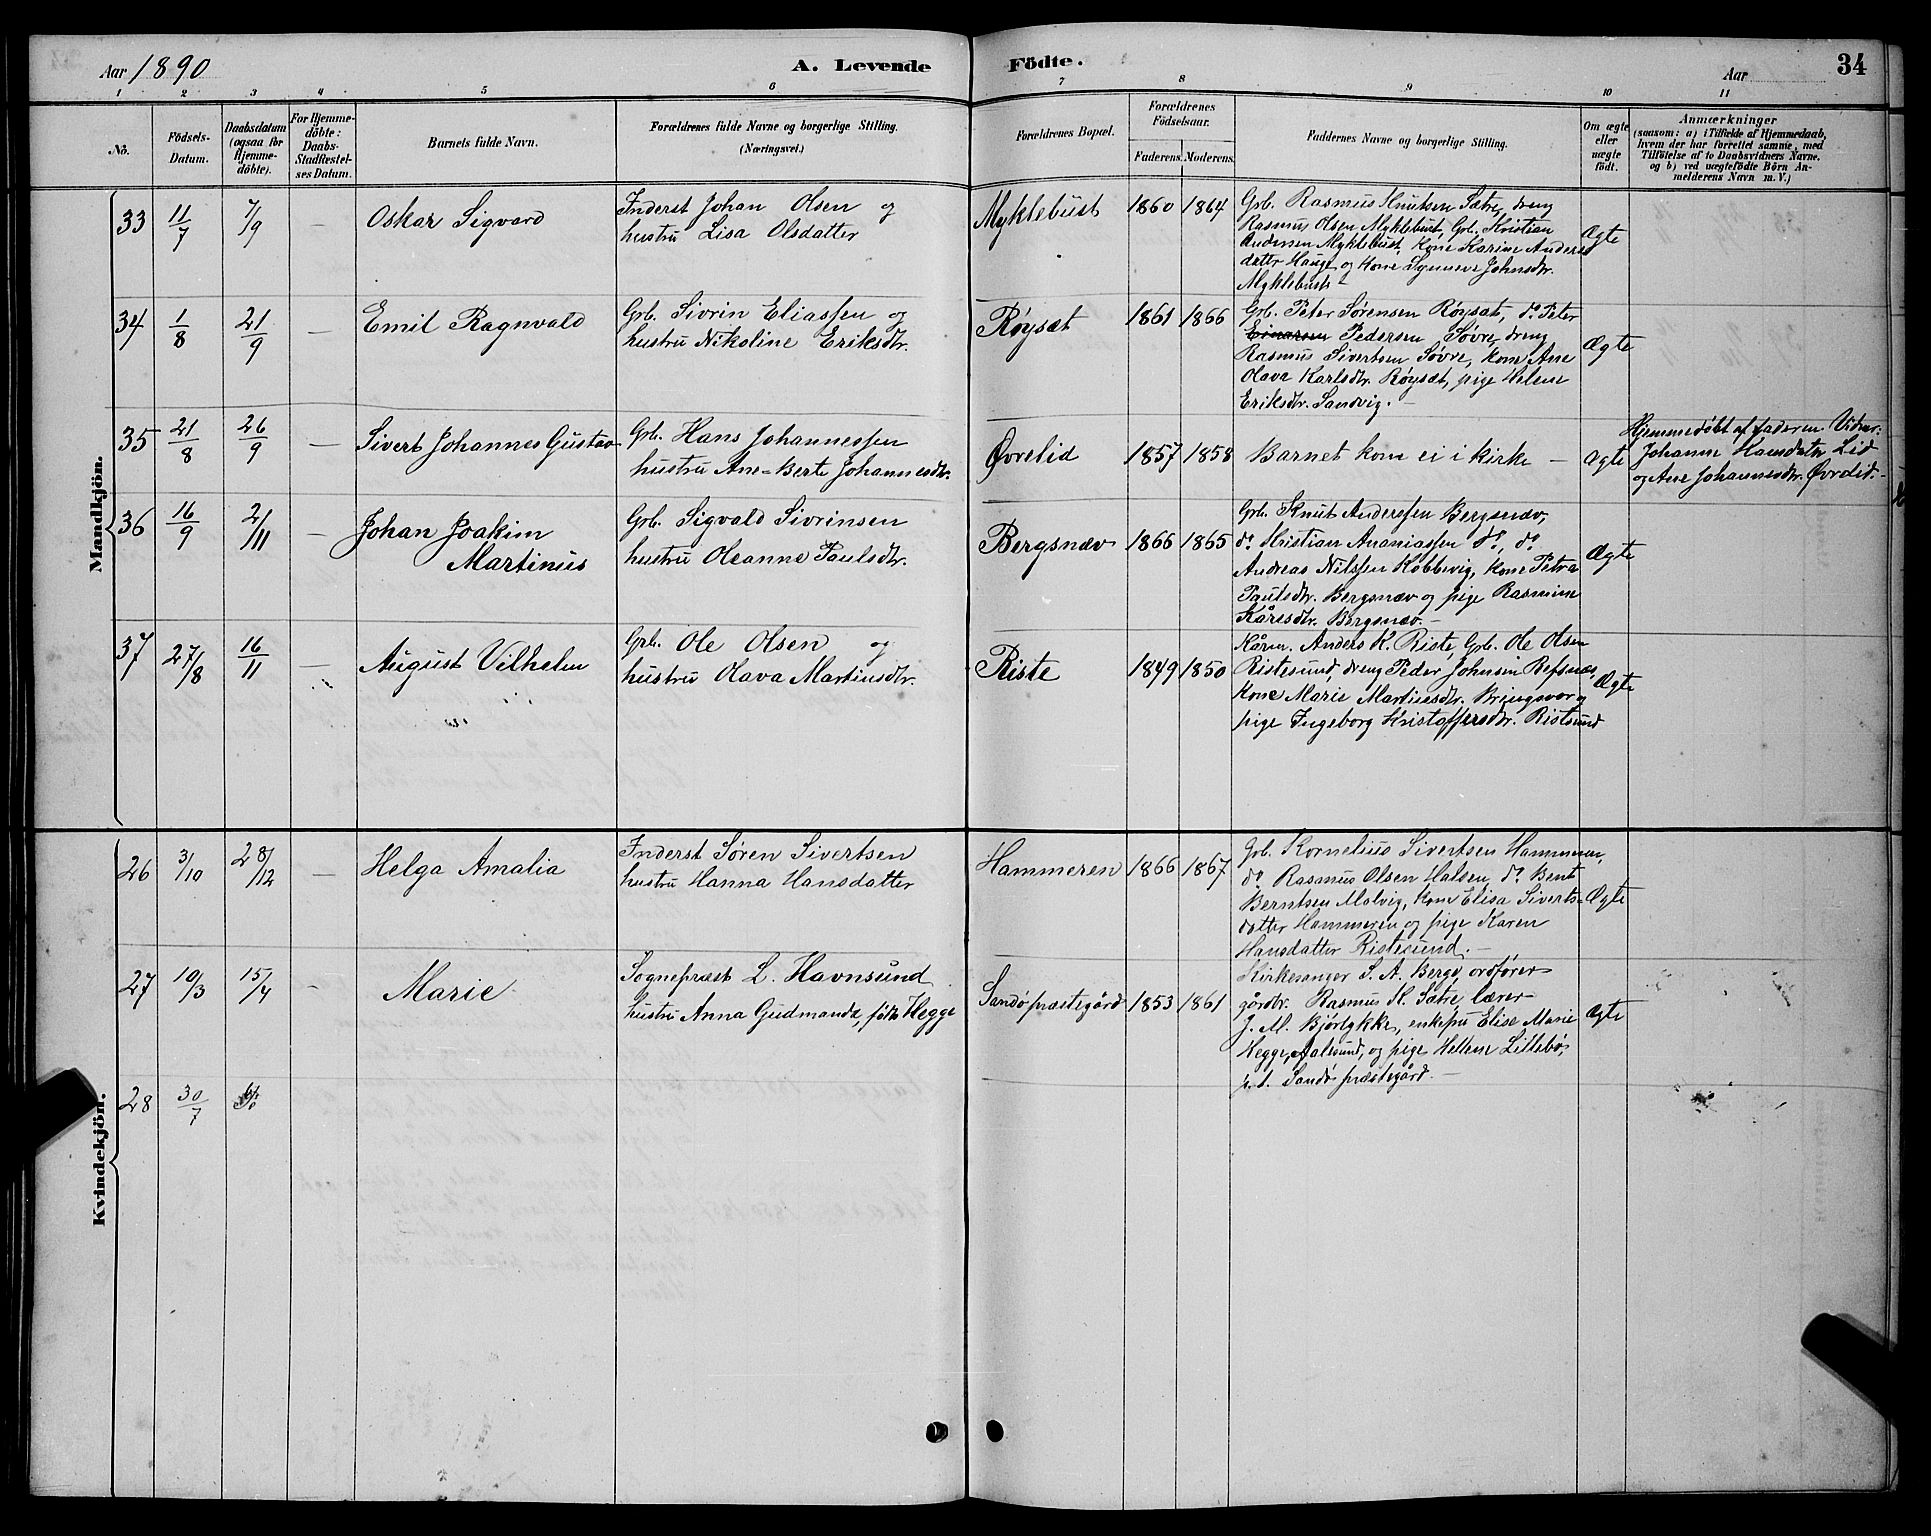 Aar 1890
A. Levende
Födte.
Aar
34
1 2 3 4 5 6 7 8 9 10 11
No.
Födsels-
Datum.
Daabsdatum
(ogsaa for
Hjemme-
döbte).
For Hjemme-
döbte:
Daabs-
Stadfæstel-
ses Datum.
Barnets fulde Navn.
Forældrenes fulde Navne og borgerlige Stilling.
(Næringsvei.)
Forældrenes Bopæl.
Forældrenes
Födselsaar.
Faderens. Moderens.
Faddernes Navne og borgerlige Stilling.
Om ægte
eller
uægte
födt.
Anmærkninger
(saasom: a) i Tilfælde af Hjemmedaab,
hvem der har forrettet samme, med
Tilföielse af to Daabsvidners Navne,
og b) ved uægtefödte Börn An-
melderens Navn m. V.)
Mandkjön.
33 11/7 7/9 – Oskar Sigvard
Inderst Johan Olsen og
hustru Lisa Olsdatter
Myklebust 1860 1864
Grb. Rasmus Knutsen Sætre, dreng
Rasmus Olsen Myklebust, Grb. Kristian
Andersen Myklebust, kone Karine Anders
datter Hauge og kone Synneve Johnsdtr.
Myklebust
Ægte
34 1/8 21/9 – Emil Ragnvald
Grb. Sivrin Eliassen og
hustru Nikoline Eriksdtr.
Røysæt 1861 1866
Grb. Peter Sørensen Røysæt, do Peter
Einarsen Pedersen Søvre, dreng
Rasmus Sivertsen Søvre, kone Ane
Olava Karlsdtr. Røysæt, pige Helene
Eriksdtr. Sandvig. –
Ægte
35 21/8 26/9 – Sivert Johannes Gustav
Grb. Hans Johannessen
hustru Ane-Berte Johannesdtr.
Øvrelid 1857 1858
Barnet kom ei i kirke –
Ægte
Hjemmedøbt af faderen. Vidner:
Johanne Hansdatr Lid
og Ane Johannesdtr. Øvrelid. –
36 16/9 2/11 – Johan Joakim
Martinus
Grb. Sigvald Sivrinsen
hustru Oleanne Paulsdtr.
Bergsnæv 1866 1865
Grb. Knut Anderssen Bergsnæv,
do Kristian Ananiassen do, do
Andreas Nilssen Kobbevig, kone Petra
Paulsdtr. Bergsnæv og pige Rasmine
Kåresdtr. Bergsnæv. –
Ægte
37 27/8 16/11 – August Vilhelm
Grb. Ole Olsen og
hustru Olava Martinsdtr.
Riste 1849 1850
Kårm. Anders K. Riste, Grb. Ole Olsen
Ristesund, dreng Peder Johnsen Refsnæs,
kone Marie Martinesdtr. Bringsvor og
pige Ingeborg Kristoffersdtr. Ristsund
Ægte
Kvindekjön.
26 3/10 28/12 – Helga Amalia
Inderst Søren Sivertsen
hustru Hanna Hansdatter
Hammeren 1866 1867
Grb. Kornelius Sivertsen Hammeren,
do Rasmus Olsen Halsen, do Bent
Berntsen Molvig, kone Elisa Siverts-
datter Hammeren og pige Karen
Hansdatter Ristesund. –
Ægte
27 10/3 15/4 – Marie
Sognepræst L. Havnsund
hustru Anna Gudmanda, født Hegge
Sandø præstegård 1853 1861
Kirkesanger S. A. Berge, ordfører
gårdbr. Rasmus K. Sætre, lærer
J. M. Bjørlykke, enkefru Elise Marie
Hegge, Aalesund, og pige Hellene Lillebø,
p. t. Sandø præstegård. –
Ægte
28 30/7